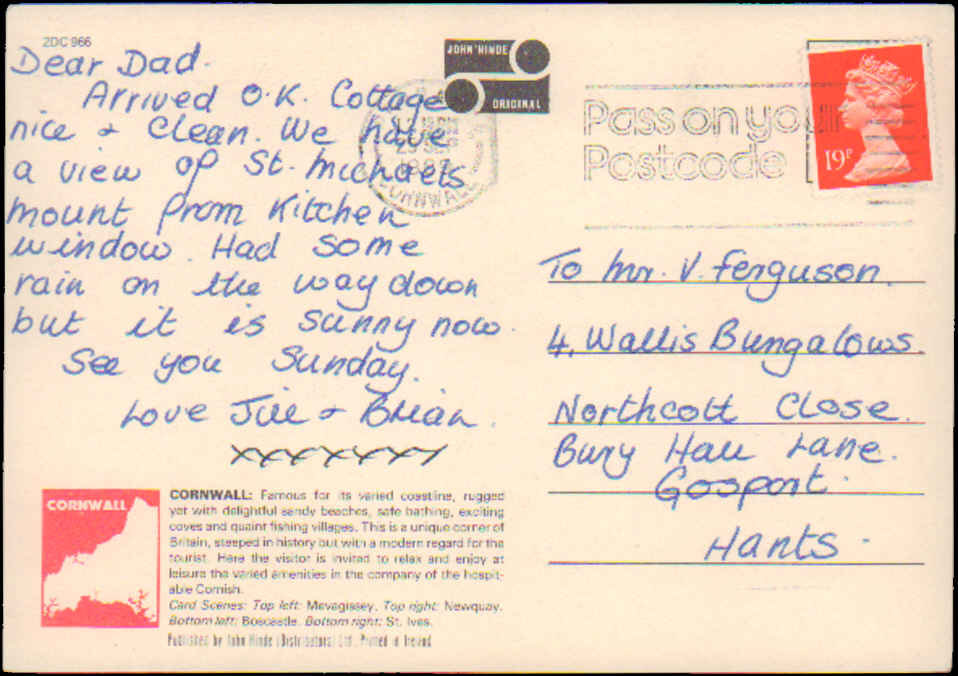 2DC 966
Dear Dad.
Arrived O.K. Cottage
nice + clean. We have
a view of St. Michaels
mount from kitchen
window. Had some
rain on the way down
but it is sunny now.
See you Sunday.
Love Jill + Brian.
xxxxxxx
JOHN HINDE
ORIGINAL
CORNWALL
Pass on your
Postcode
19P
To Mr. V. Ferguson.
4, Wallis Bungalows.
Northcott Close.
Bury Hall Lane.
Gosport.
Hants.
CORNWALL
CORNWALL: Famous for its varied coastline, rugged
yet with delightful sandy beaches, safe bathing, exciting
coves and quaint fishing villages. This is a unique corner of
Britain, steeped in history but with a modern regard for the
tourist. Here the visitor is invited to relax and enjoy at
leisure the varied amenities in the company of the hospit-
able Cornish.
Card Scenes: Top left: Mevagissey. Top right: Newquay.
Bottom left: Boscastle. Bottom right: St. Ives.
Published by John Hinde (Distributors) Ltd. Printed in Ireland